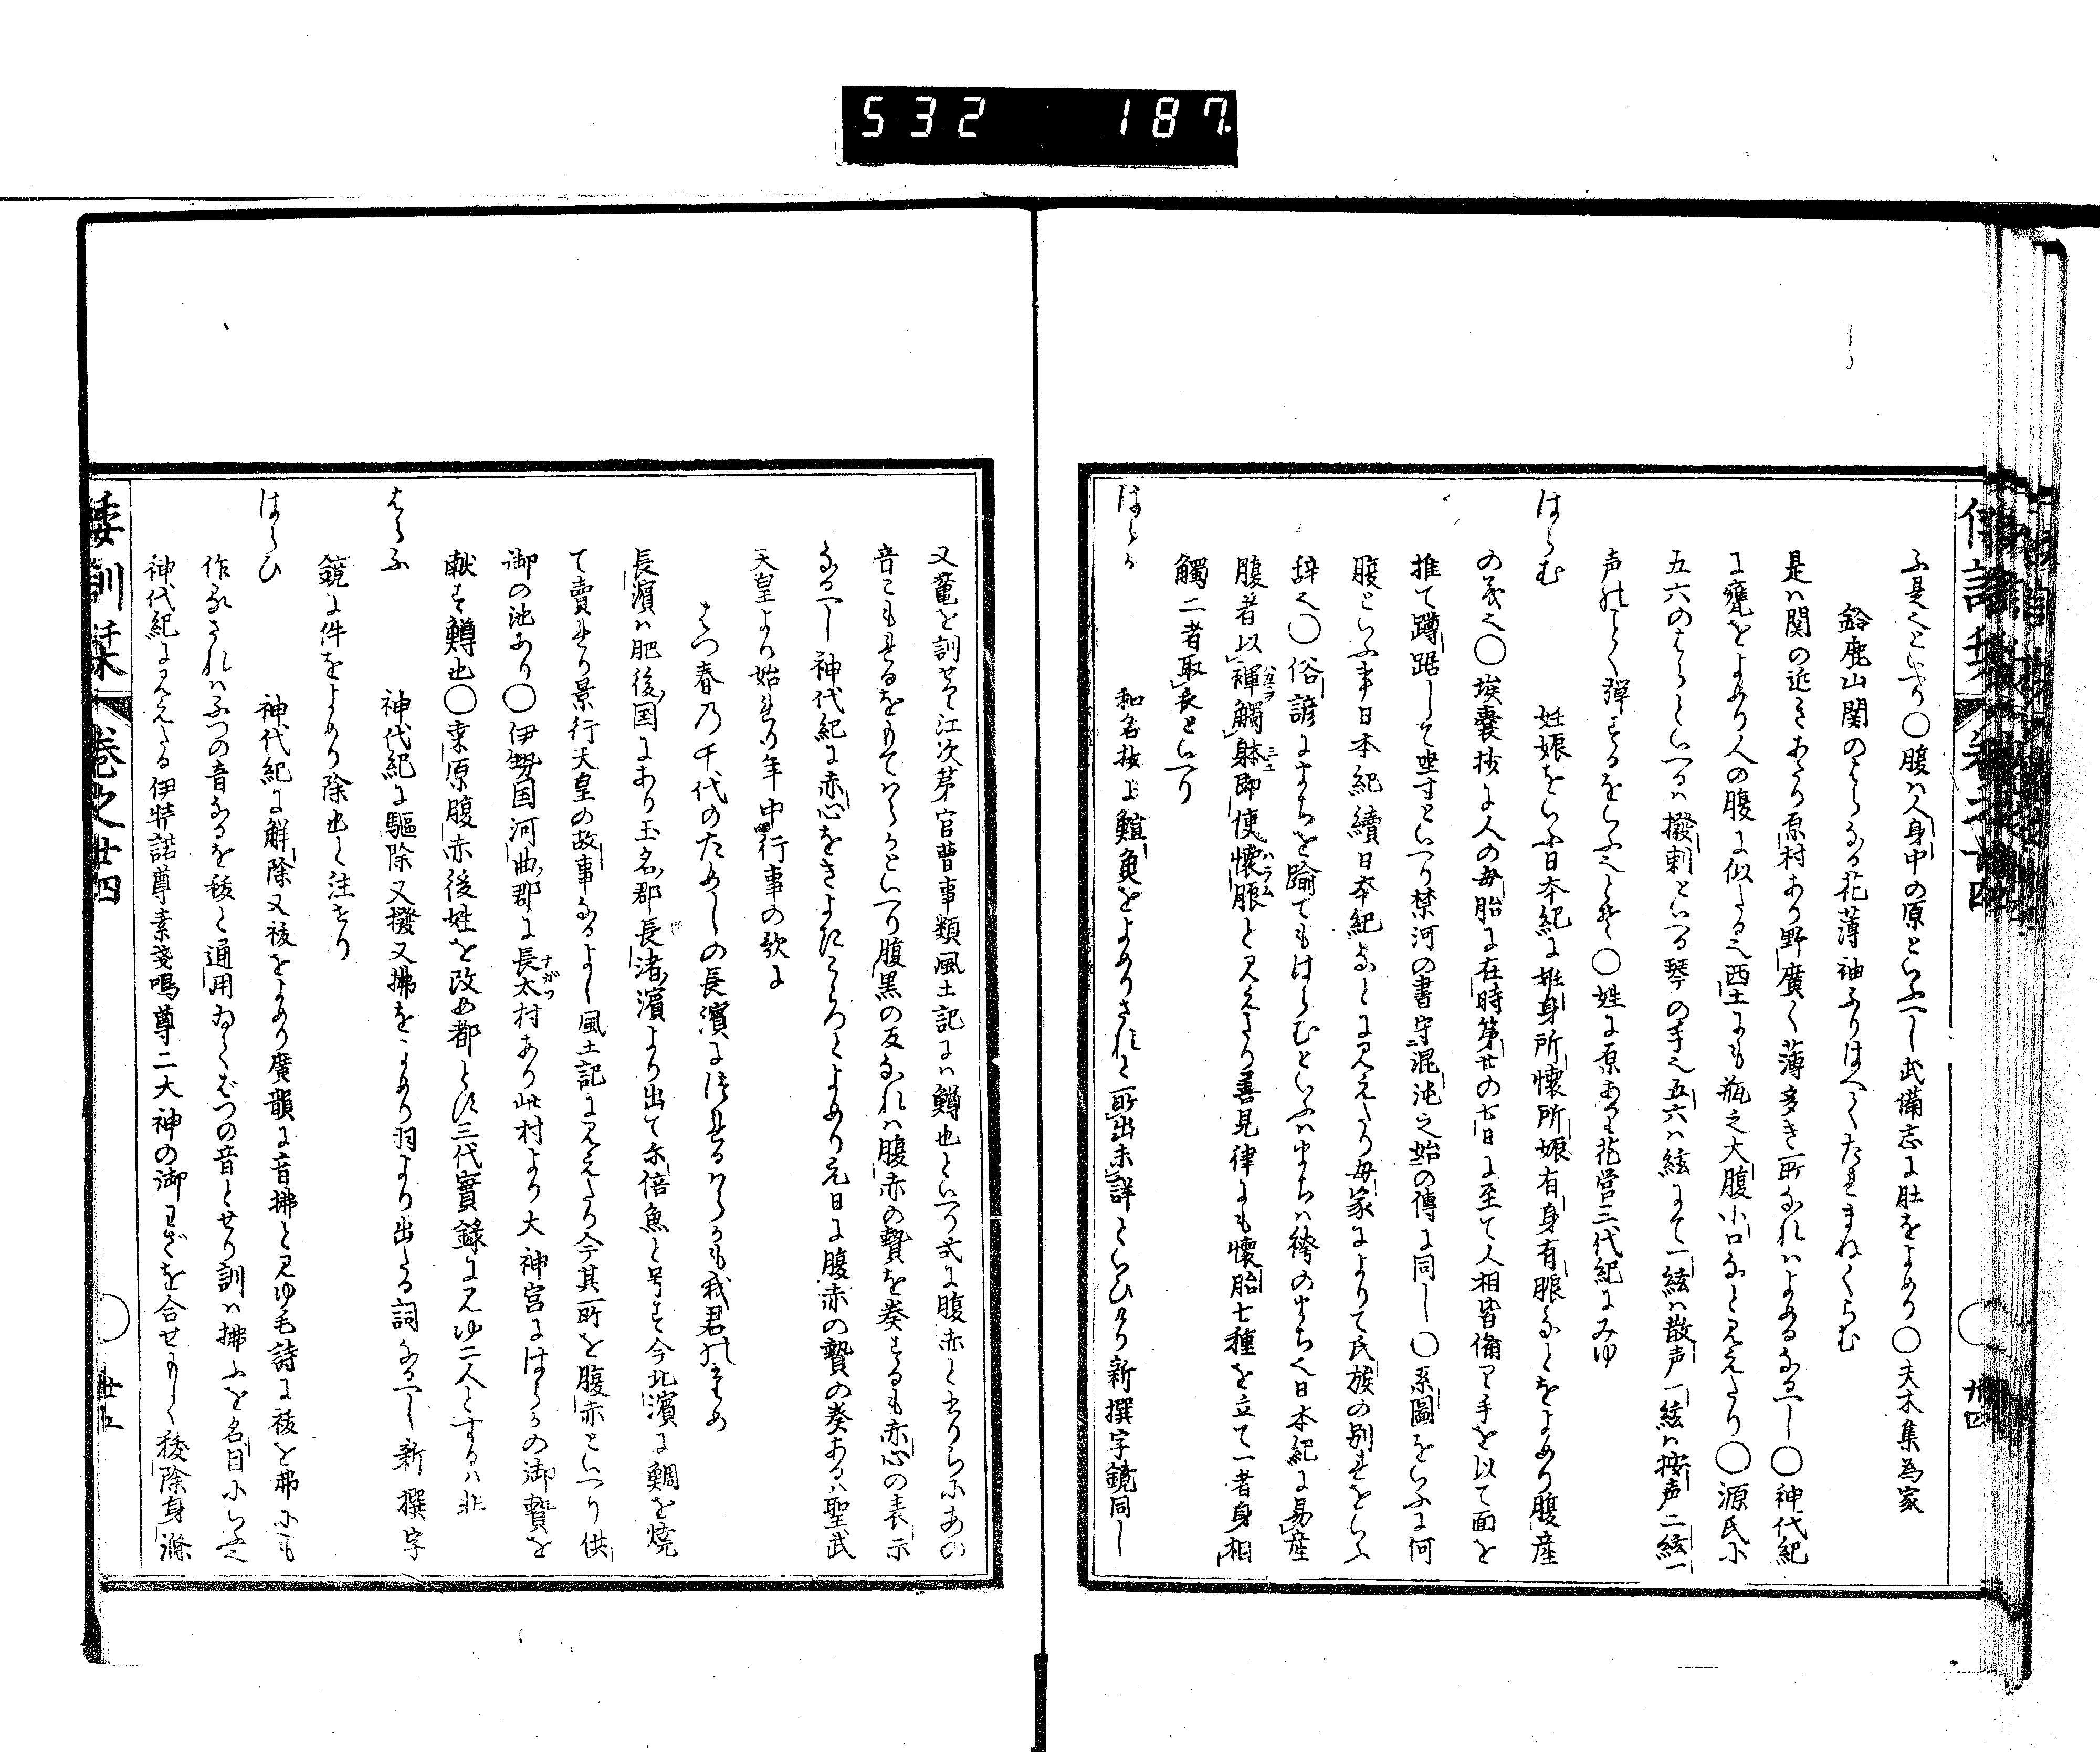 532 187
ふ是也といへり○腹ハ人身中の原といふへし武備志に肚をよめり○夫木集為家
鈴鹿山関のはらなる花薄袖ふりはへてたれまねくらむ
是ハ関の近きあたり原村あり野廣く薄多き所なれハよめるなるへし○神代紀
に甕をよめり人の腹に似たる也西土にも瓶之大腹小口なと見えたり○源氏に
五六のはらといへるハ撥剌といへる琴の手也五六ハ絃にて一絃ハ散声一絃ハ按声二絃一
声のことく弾するをいふ也とそ○姓に原あり花営三代紀にみゆ
はらむ 妊娠をいふ日本紀に妊身所懐所娠有身有脹なとをよめり腹産
の義也○埃嚢抄に人の母胎に在時第廿の七日に至て人相皆備り手を以て面を
推て蹲踞して坐すといへり禁河の書守混沌之始の傳に同し○系圖をいふに何
腹といふ事日本紀續日本紀なとに見えたり母家によりて氏族の別れをいふ
辞也○俗諺にまちを踰てもはらむといふハまちハ袴のまち也日本紀に易産
腹者以褌觸躰即便懐脹と見えたり善見律にも懐胎七種を立て一者身相
觸二者取衣といへり
はらか 和名抄に鰚魚をよめりされと所出未詳といひたり新撰字鏡同し
又䰷を訓せり江次第官曹事類風土記にハ鱒也といへり式に腹赤と
音こもれるをもてはらかといへり腹黒の反なれハ腹赤の贄を奏するも赤心の表示
なるへし神代紀に赤心をきよきこゝろとよめり元日に腹赤の贄の奏あるハ聖武
天皇より始れり年中行事の歌に
はつ春乃千代のためしの長濱につれるはらかも我君のため
長濱ハ肥後国にあり玉名郡長渚濱より出て尓倍魚と号す今北濱に鯛を焼
て賣れり景行天皇の故事なるよし風土記に見えたり今其所を腹赤といへり供
御の池あり○伊勢国河曲郡に長太村あり此村より大神宮にはらかの御贄を
献す鱒也○栗原腹赤後姓を改め都とす三代實録に見ゆ二人とするハ非
はらふ 神代紀に驅除又撥又拂をよめり羽より出たる詞なるへし新撰字
鏡に件をよめり除也と注せり
はらひ 神代紀に解除又祓をよめり廣韻に音拂と見ゆ毛詩に祓を弗にも
作るされハふつの音なるを祓と通用ゐてはつの音とせり訓ハ拂ふを名目にいふ也
神代紀に見えたる伊弉諾尊素戔嗚尊二大神の御わざを合せもて祓除身滌
倭訓栞 巻之廿四 廿五